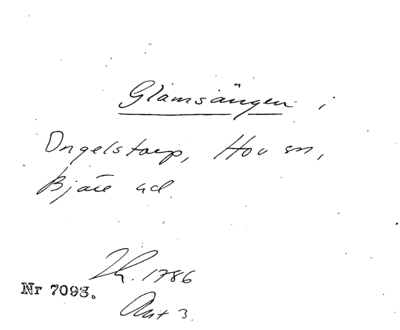 Glamsängen i
Ongelstorp, Hov sn,
Bjäre hd.
Th. 1786
Nr 7093.
Ant 3.